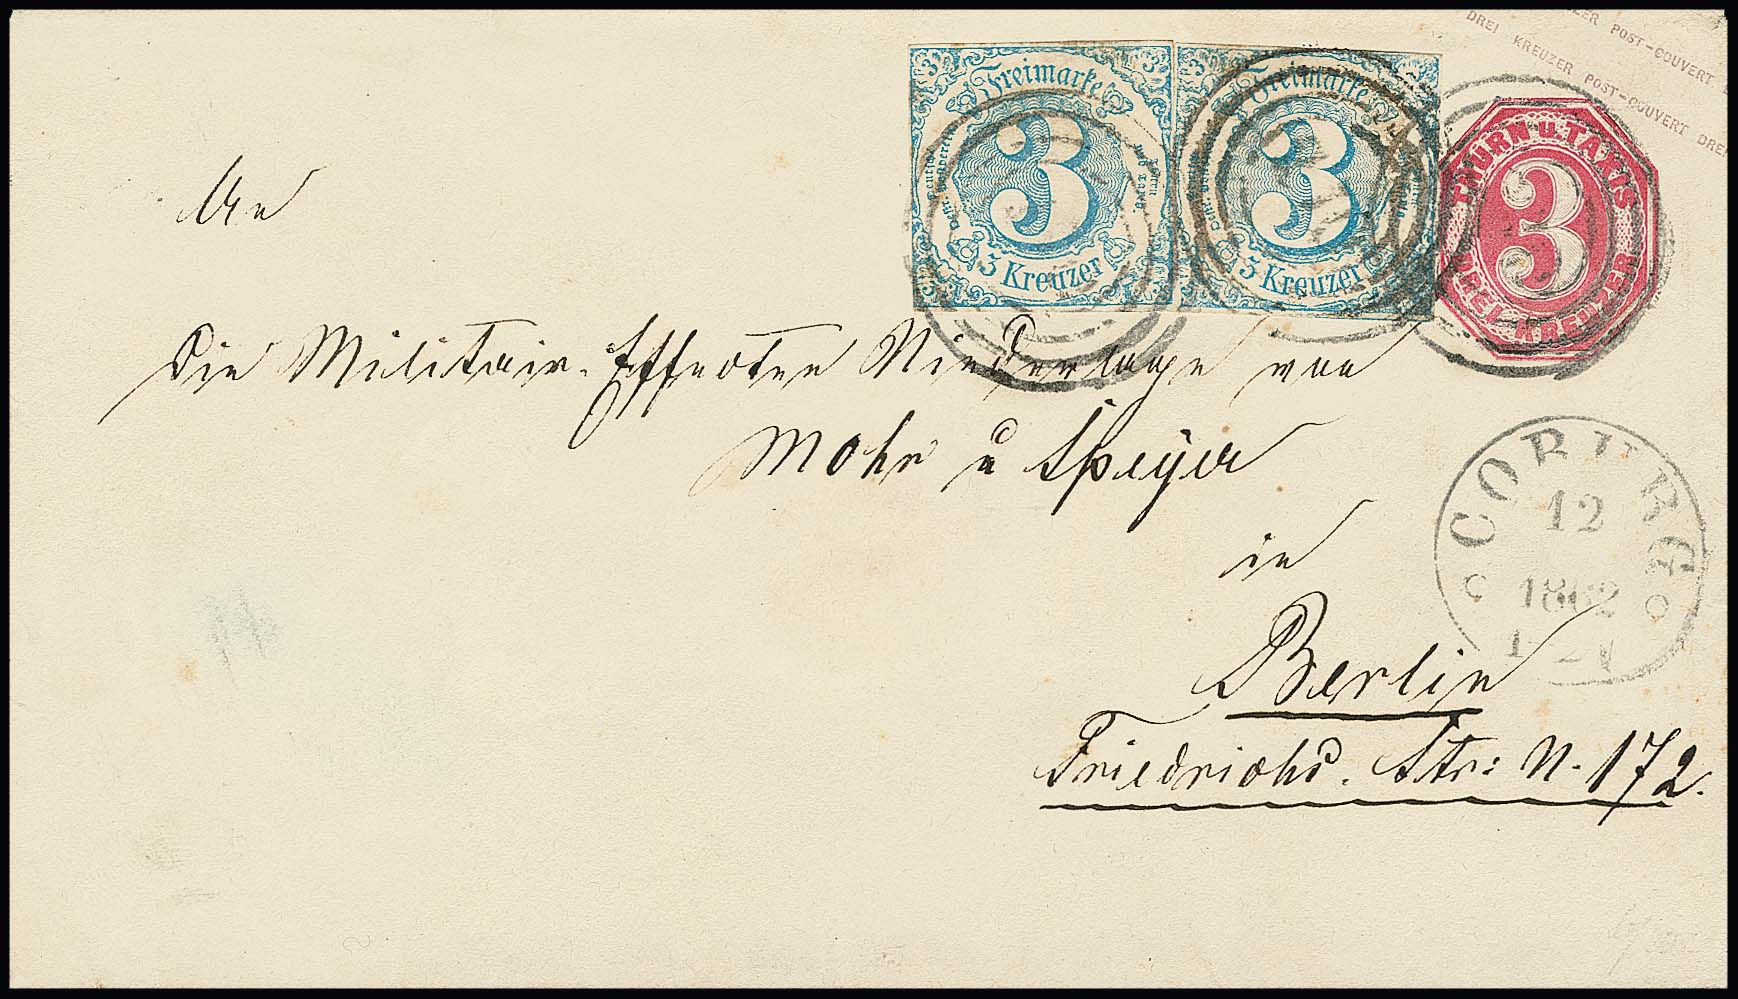 DREI KREUZER POST-COUVERT
DREI KREUZER POST-COUVERT DREI
Freimarke
3
3 Kreuzer
Freimarke
3
3 Kreuzer
THURN u. TAXIS
3
DREI KREUZER
An
die Militair-Effecten Niederlage von
Mohr u Speyer
in
Berlin
Friedrichs. Str: N. 172.
COBURG
12
1862